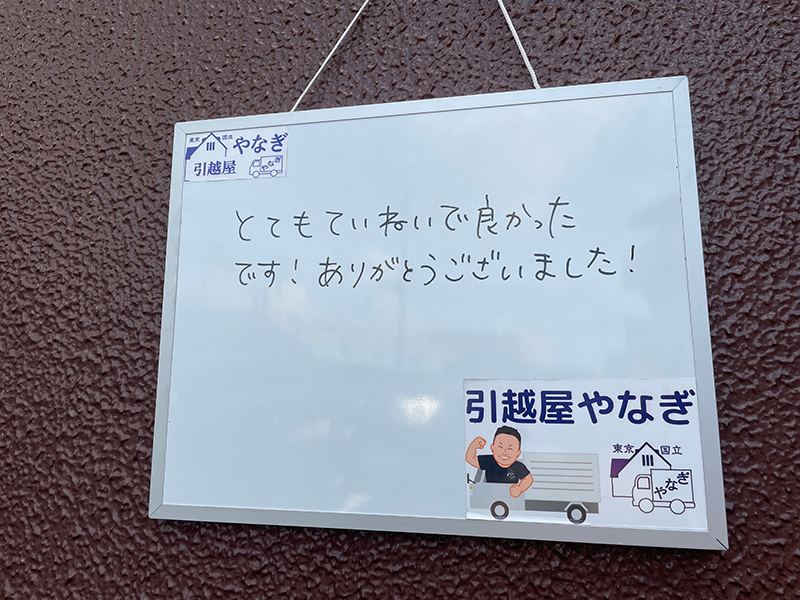 東京 国立 やなぎ
引越屋 やなぎ
とてもていねいで良かった
です！ありがとうございました！
引越屋やなぎ
東京 国立
やなぎ